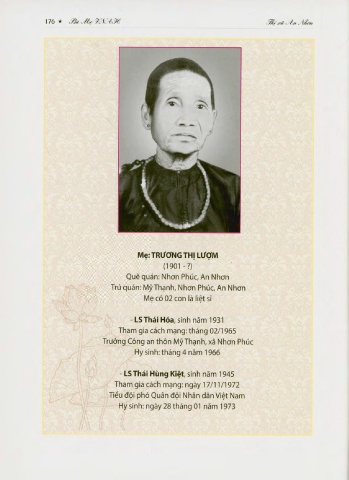 176 ★ Bà Mẹ VNAH
Thị xã An Nhơn
Mẹ: TRƯƠNG THỊ LƯỢM
(1901 - ?)
Quê quán: Nhơn Phúc, An Nhơn
Trú quán: Mỹ Thạnh, Nhơn Phúc, An Nhơn
Mẹ có 02 con là liệt sĩ
- LS Thái Hóa, sinh năm 1931
Tham gia cách mạng: tháng 02/1965
Trưởng Công an thôn Mỹ Thạnh, xã Nhơn Phúc
Hy sinh: tháng 4 năm 1966
- LS Thái Hùng Kiệt, sinh năm 1945
Tham gia cách mạng: ngày 17/11/1972
Tiểu đội phó Quân đội Nhân dân Việt Nam
Hy sinh: ngày 28 tháng 01 năm 1973